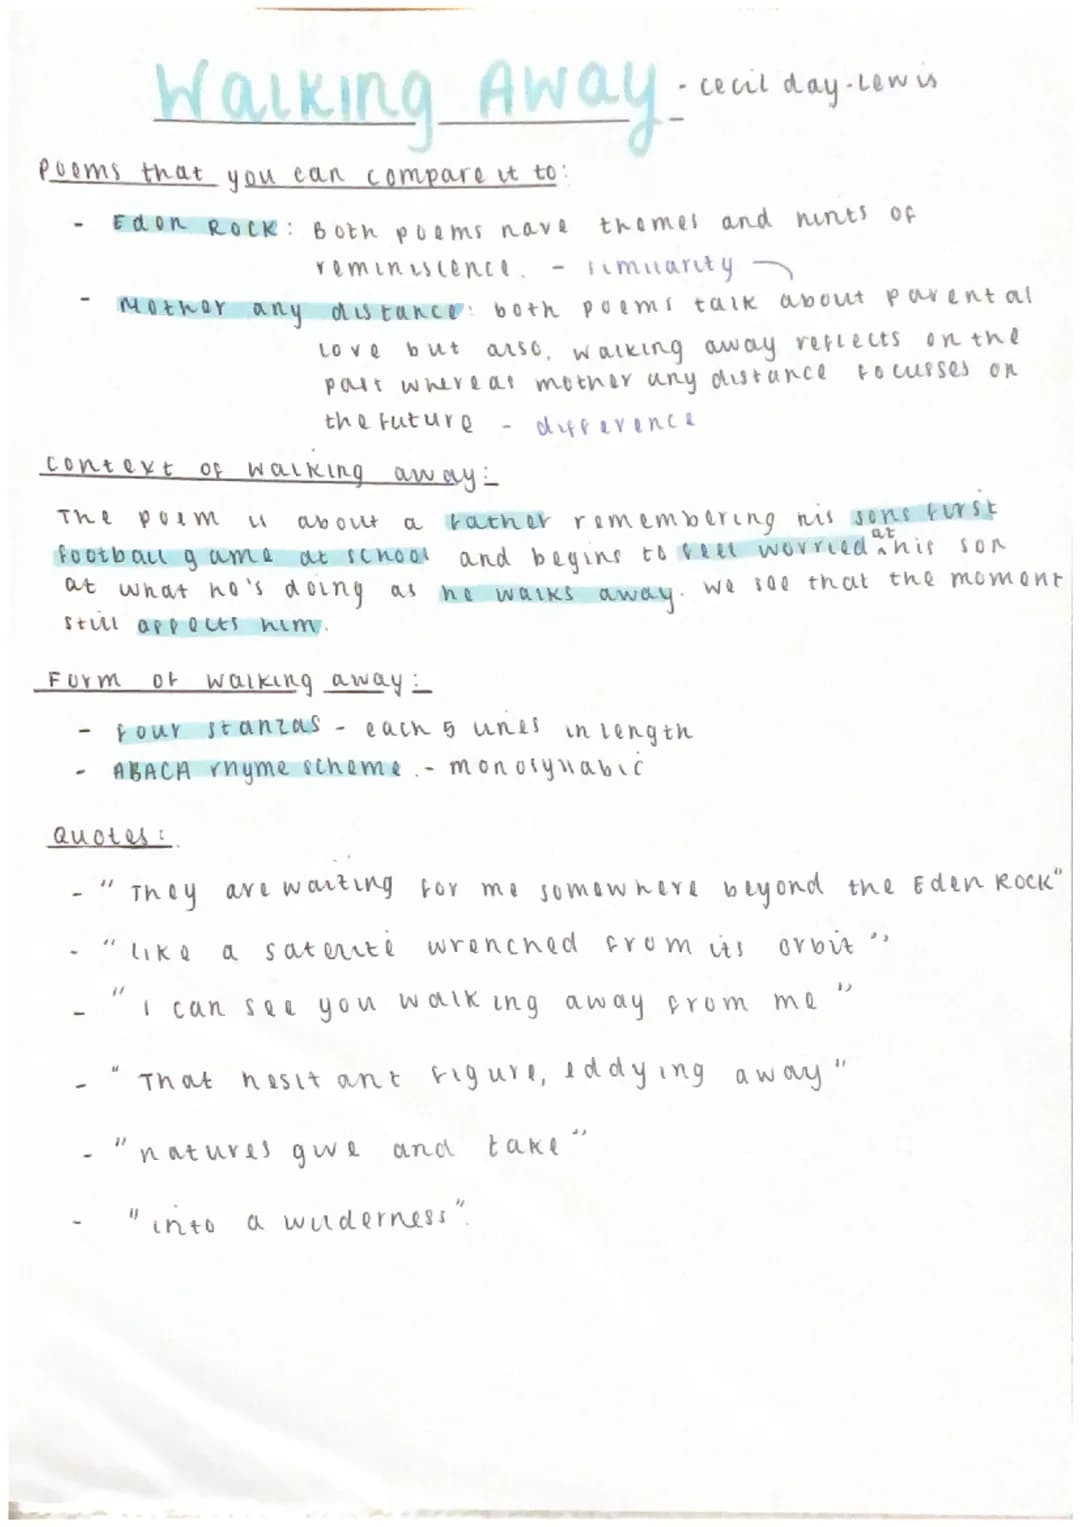 Walking Away - cecil day-Lewis
Poems that you can compare it to:
- Eden Rock: Both poems have themes and hints of
reminiscence. - similarity
- Mother any distance: both poems talk about parental
Love but also, walking away reflects on the
past whereas mother any distance focusses on
the future - difference
context of walking away:
The poem is about a father remembering his sons first
football game at school and begins to feel worried at his son
at what he's doing as he walks away. we see that the moment
still affects him.
Form of walking away:
- four stanzas - each 5 lines in length
- ABACA rhyme scheme. - monosyllabic
Quotes:
- "They are waiting for me somewhere beyond the Eden Rock"
- "like a satellite wrenched from its orbit"
- "I can see you walking away from me"
- "That hesitant figure, eddying away"
- "natures give and take"
- "into a wilderness".